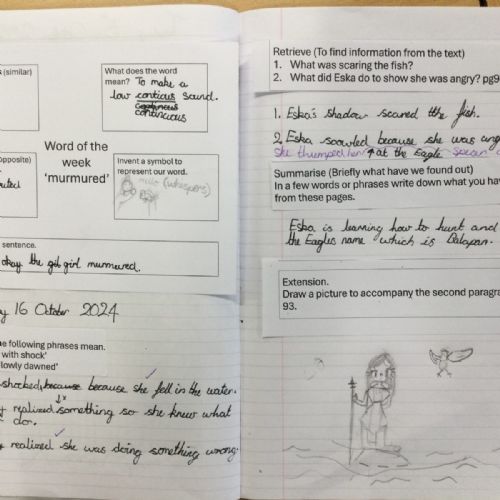 (similar)
What does the word
mean? To make a
low contious sound.
continuous
Word of the
week
'murmured'
opposite)
Invent a symbol to
represent our word.
hello (whispers)
sentence.
okay the girl murmured.
16 October 2024
following phrases mean.
with shock'
lowly dawned'
shocked, because because she fell in the water.
realized something so she knew what
do.
realized she was doing something wrong.
Retrieve (To find information from the text)
1. What was scaring the fish?
2. What did Eska do to show she was angry? pg9
1. Eska's shadow scared the fish.
2 Eska scowled because she was ang
she thumped her at the Eagle
Summarise (Briefly what have we found out)
In a few words or phrases write down what you hav
from these pages.
Eska is learning how to hunt and
the Eagles name which is Balapan.
Extension.
Draw a picture to accompany the second paragra
93.